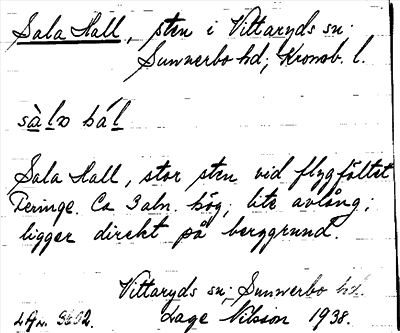 Sala Hall, sten i Vittaryds sn;
Sunnerbo hd; Kronob. l.
sàlɷ hál
Sala Hall, stor sten vid flygfältet
Feringe. Ca 3 aln. hög; lite avlång;
ligger direkt på berggrund.
Vittaryds sn; Sunnerbo hd.
Lage Nilsson 1938.